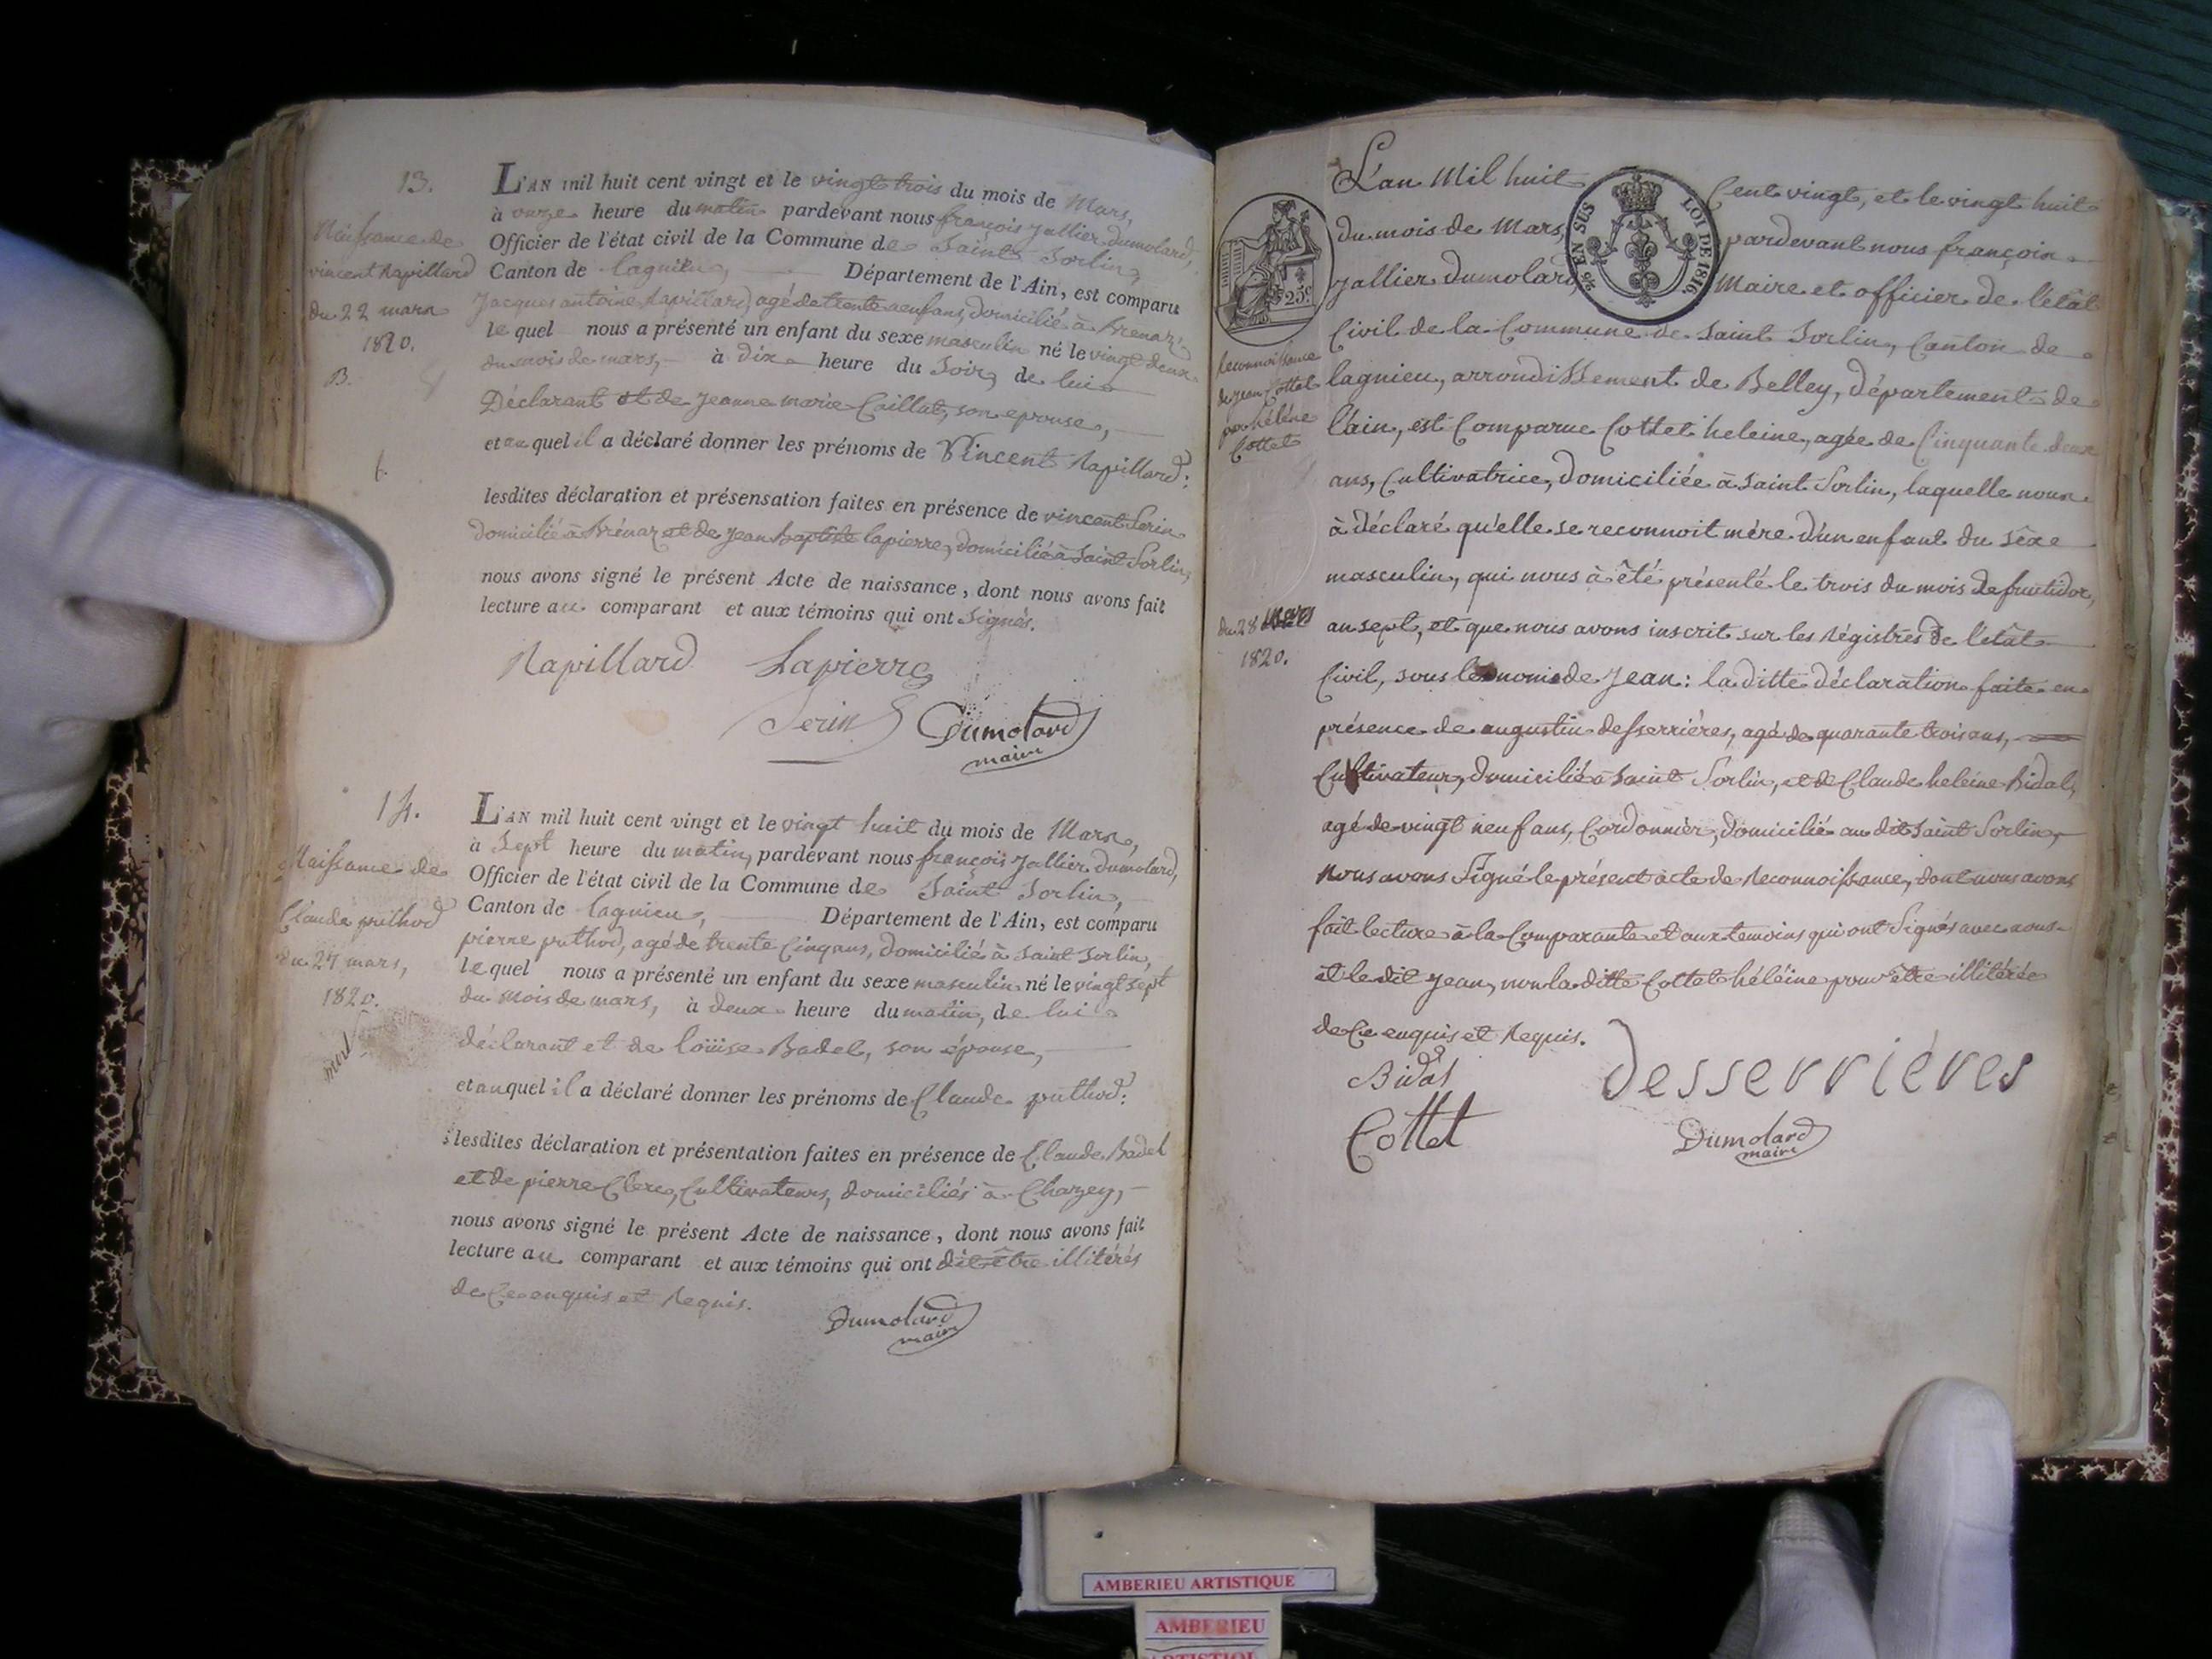 13.
Naissance de
vincent Rapillard
du 22 mars
1820.
B.
L'AN mil huit cent vingt et le vingt trois du mois de Mars,
à onze heure du matin pardevant nous françois Jallier Dumolard,
Officier de l'état civil de la Commune de Saint Sorlin,
Canton de lagnieu, Département de l'Ain, est comparu
Jacques antoine Rapillard, agé de trente ans, domicilié à Brenaz,
le quel nous a présenté un enfant du sexe masculin né le vingt deux
du mois de mars, à dix heure du Soir, de lui
Déclarant et de Jeanne marie Caillat, son epouse,
et au quel il a déclaré donner les prénoms de Vincent Rapillard:
lesdites déclaration et présensation faites en présence de vincent Serin
domicilié à Brénaz et de Jean baptiste lapierre, domicilié à Saint Sorlin,
nous avons signé le présent Acte de naissance, dont nous avons fait
lecture au comparant et aux témoins qui ont signés.
Rapillard Lapierre
Serin Dumolard
maire
14.
Naissance de
Claude puthod
du 27 mars,
1820.
mort
L'AN mil huit cent vingt et le vingt huit du mois de Mars,
à Sept heure du matin, pardevant nous françois Jallier Dumolard,
Officier de l'état civil de la Commune de Saint Sorlin,
Canton de lagnieu, Département de l'Ain, est comparu
pierre puthod, agé de trente Cinq ans, domicilié à Saint Sorlin,
le quel nous a présenté un enfant du sexe masculin né le vingt sept
du mois de mars, à deux heure du matin, de lui
déclarant et de loüise Badel, son épouse,
et au quel il a déclaré donner les prénoms de Claude puthod:
lesdites déclaration et présentation faites en présence de Claude Badel
et de pierre Clerc, Cultivateurs, domiciliés à Chazey,
nous avons signé le présent Acte de naissance, dont nous avons fait
lecture au comparant et aux témoins qui ont dit être illitérés
de Ce enquis et Requis.
Dumolard
maire
25c
EN SUS
LOI DE 1816.
Reconnoissance
de Jean Cottet
par héléne
Cottet
du 28 mars
1820.
L'an Mil huit Cent vingt, et le vingt huit
du mois de Mars, pardevant nous françois
Jallier Dumolard, Maire et officier de l'état
Civil de la Commune de Saint Sorlin, Canton de
lagnieu, arrondissement de Belley, département de
l'ain, est Comparue Cottet heleine, agée de Cinquante deux
ans, Cultivatrice, domiciliée à Saint Sorlin, laquelle nous
à déclaré qu'elle se reconnoit mére d'un enfant du sèxe
masculin, qui nous à été présenté le trois du mois de fructidor,
an sept, et que nous avons inscrit sur les Régistres de l'etat
Civil, sous le nom de Jean: la ditte déclaration faite en
présence de augustin desserriéres, agé de quarante trois ans,
Cultivateur, domicilié à Saint Sorlin, et de Claude heleine Bidal,
agé de vingt neuf ans, Cordonnier, domicilié au dit Saint Sorlin,
Nous avons Signé le présent acte de Reconnoissance, dont nous avons
fait lecture à la Comparante et aux temoins qui ont Signés avec nous
et le dit Jean, non la ditte Cottet héléine pour être illitérée
de Ce enquis et Requis.
Bidal desserriéres
Cottet Dumolard
maire
AMBERIEU ARTISTIQUE
AMBERIEU
ARTISTIQUE